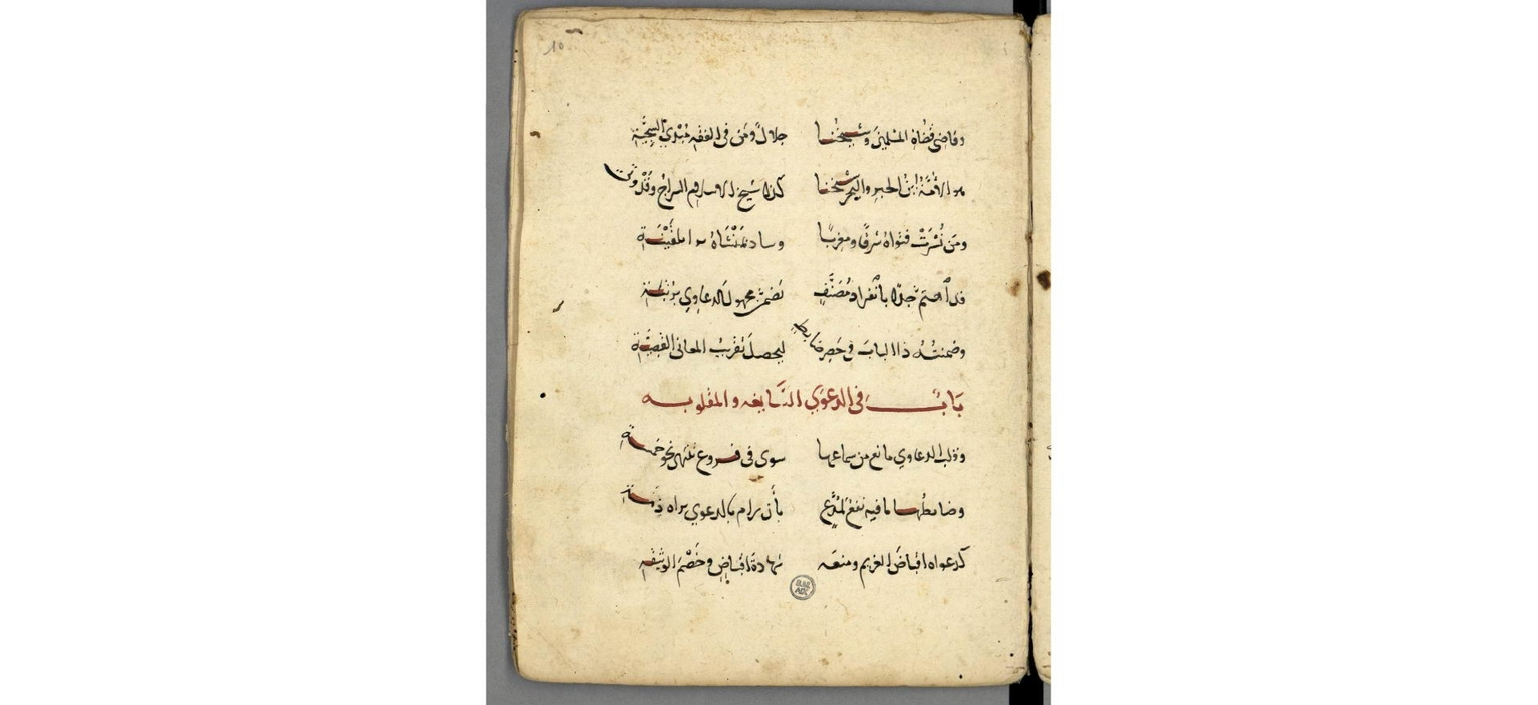 وقاضي قضاة المسلمين وشيخنا جلال ومن في الفقه مبدي
الأمة ابن الحبر والبحر شيخنا كذا شيخ الاسلام السراج
ومن نشرت فتواه شرقا ومغربا وساد
بانفراد مصنف تضمن مجهول الدعاوي
وضمنته ذا الباب في حصر ضابط ليحصل تقريب المعاني القصية
باب في الدعوي السابغه والمقلوبه
وقلب الدعاوي مانع من سماعها سوى في فروع تنتهى نحو خمسة
وضابطها ما فيه نفع لمدع بأن رام بالدعوي براة ذمة
كدعواه اقباض الغريم ومنعه شهادة اقباض وخصم الوثيقه